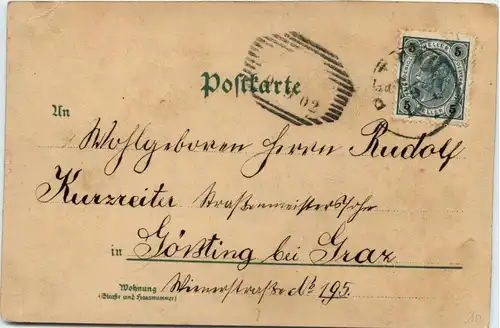 5 HELLER 5
Postkarte
02
An
Wohlgeboren Herrn Rudolf
Kurzreiter Straßenmeisterssohn
in Gösting bei Graz
Wohnung
(Straße und Hausnummer)
Wienerstraße No 195.
5 HELLER 5